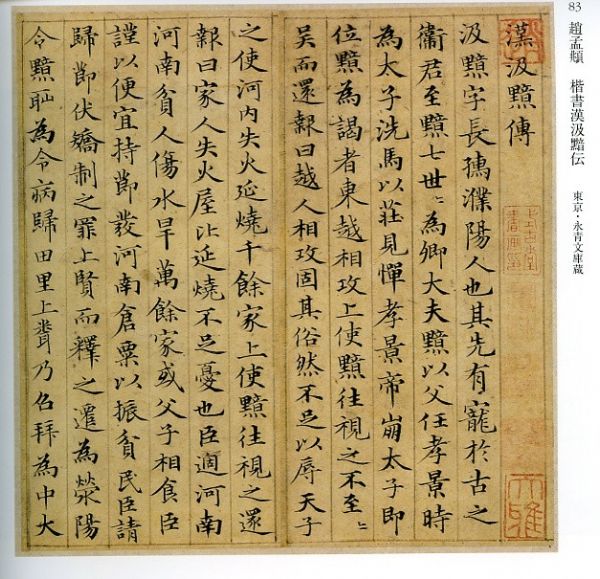 83
趙孟頫 楷書漢汲黯伝 東京・永青文庫蔵
漢汲黯傳
汲黯字長孺濮陽人也其先有寵於古之
衞君至黯七世〻為卿大夫黯以父任孝景時
為太子洗馬以莊見憚孝景帝崩太子即
位黯為謁者東越相攻上使黯往視之不至〻
吳而還報曰越人相攻固其俗然不足以辱天子
之使河内失火延燒千餘家上使黯往視之還
報曰家人失火屋比延燒不足憂也臣適河南
河南貧人傷水旱萬餘家或父子相食臣
謹以便宜持節發河南倉粟以振貧民臣請
歸節伏矯制之罪上賢而釋之遷為滎陽
令黯恥為令病歸田里上聞乃召拜為中大